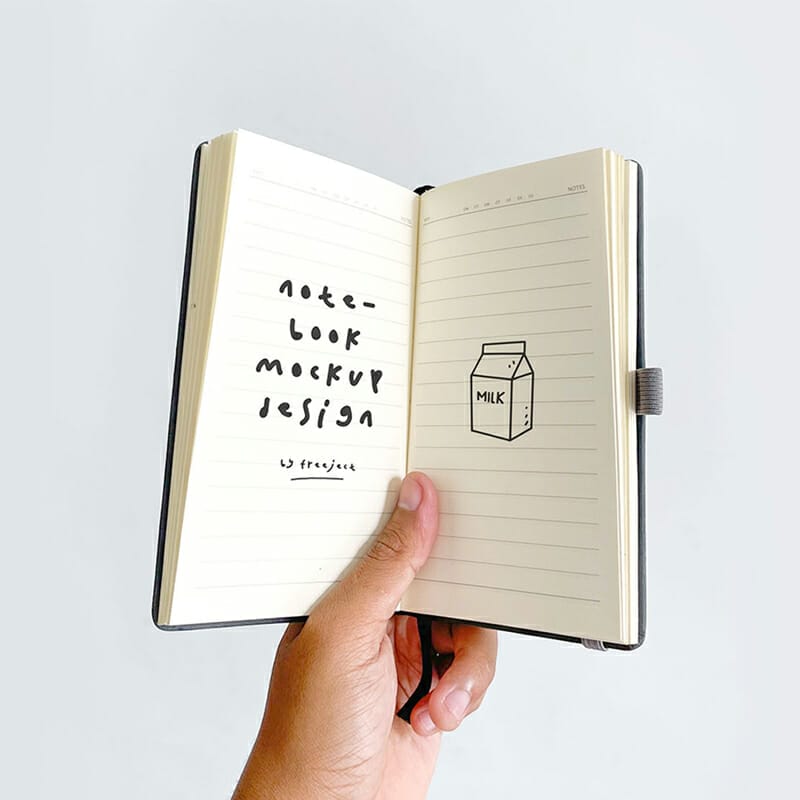 note-
book
mockup
design
by freeject
NOTES
MILK